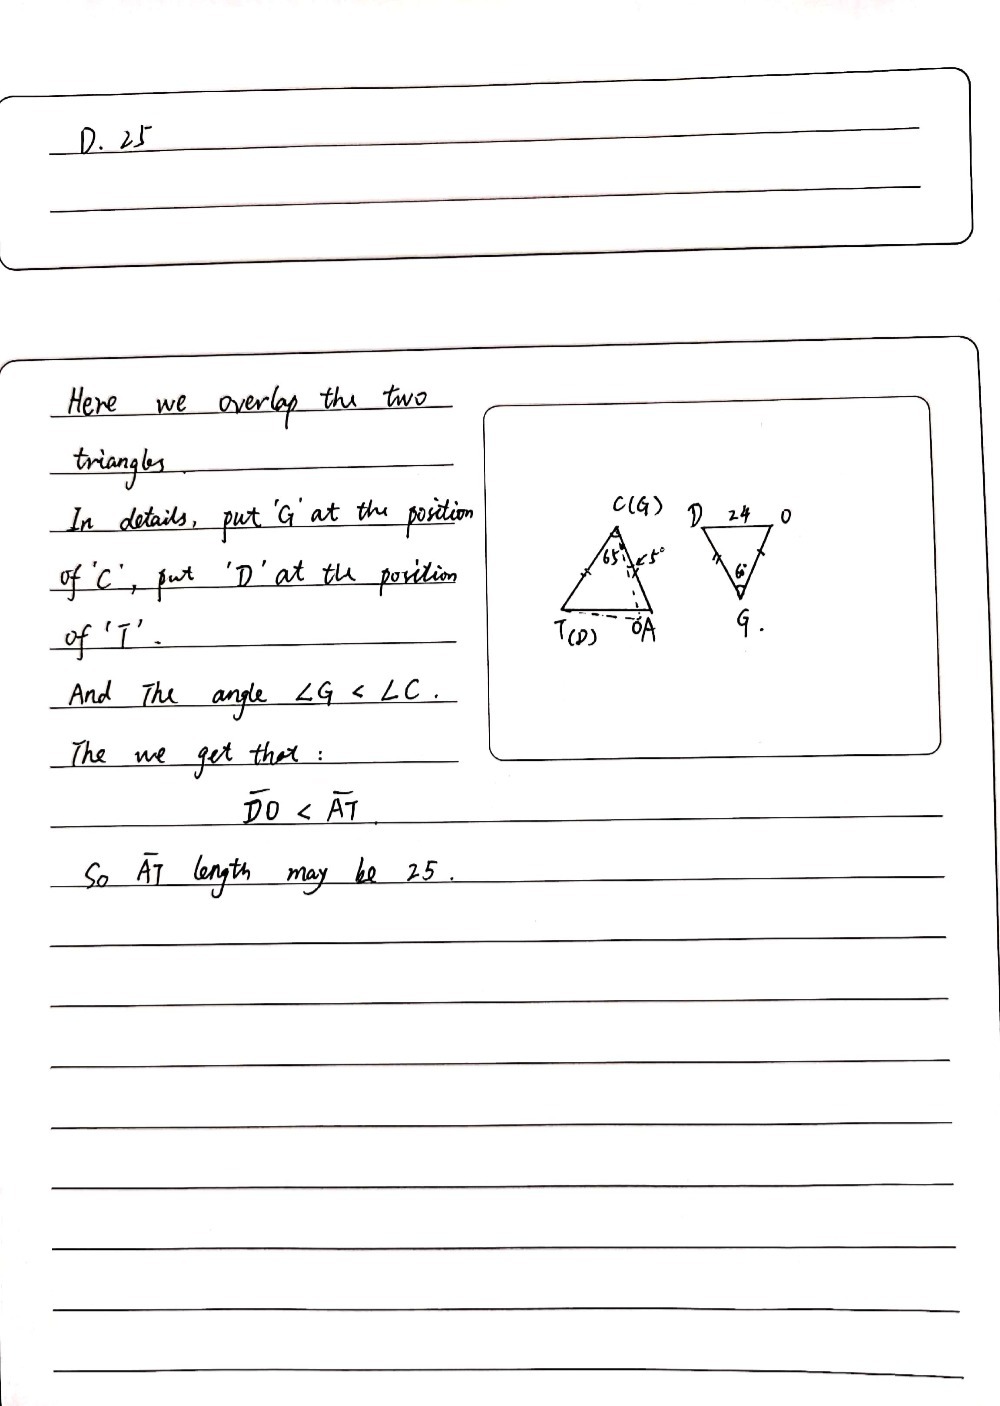 D. 25
Here we overlap the two
triangles.
In details, put 'G' at the position
of 'C', put 'D' at the position
of 'T'.
And The angle ∠G < ∠C.
The we get that:
D̅O < A̅T.
So A̅T length may be 25.
C(G)
65°
5°
T(D)
O
A
D
24
O
G.